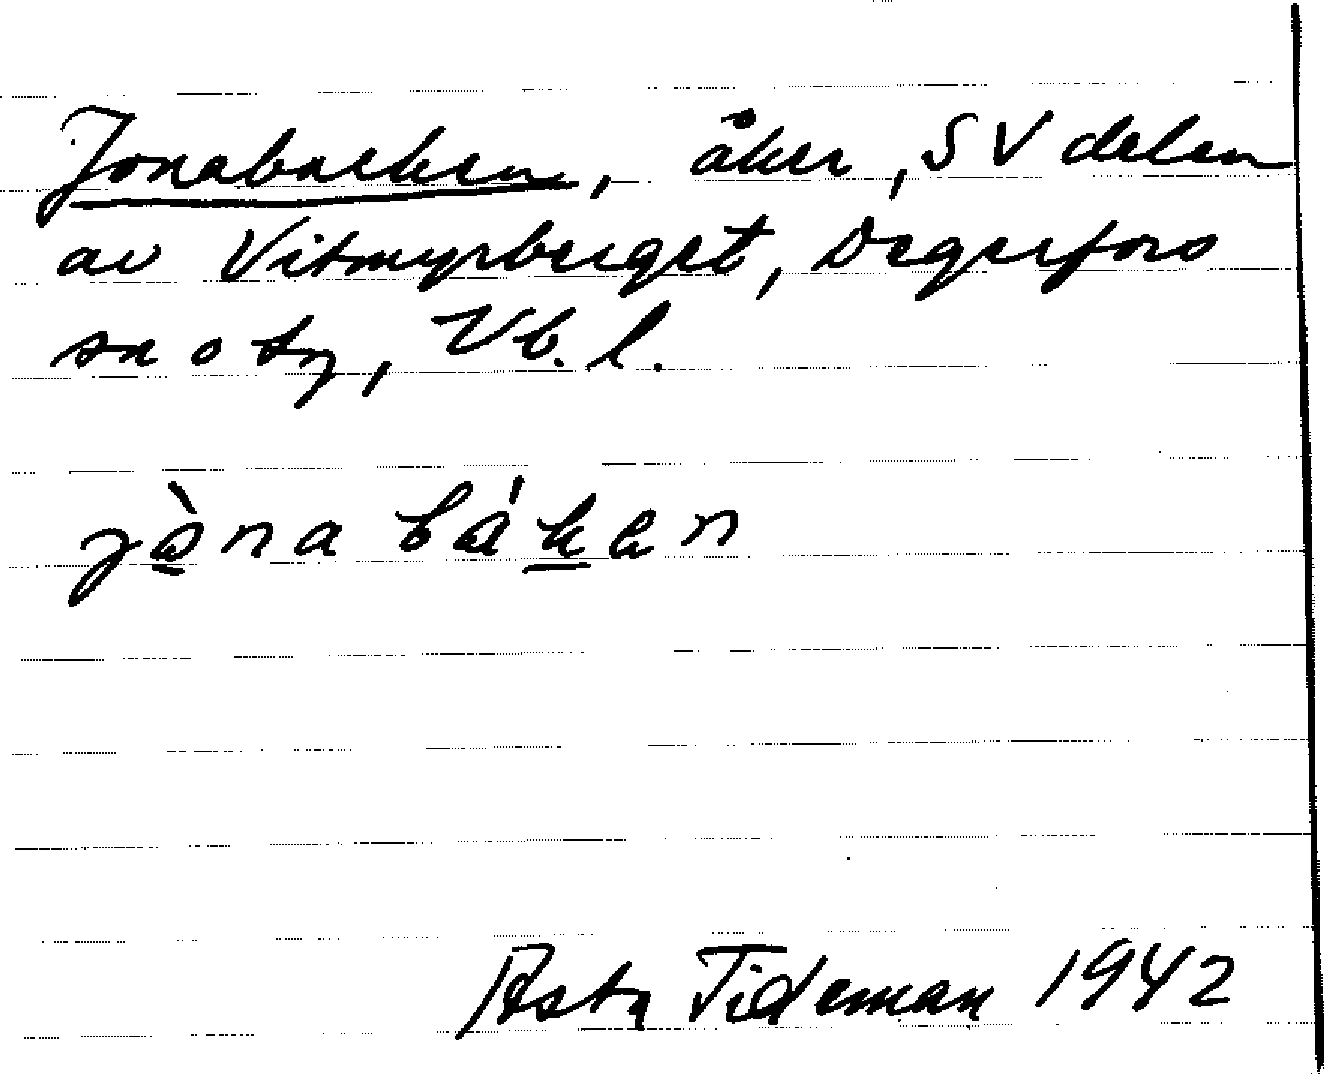 Jonabacken, åker, SV delen
av Vitmyrberget, Degerfors
sn o tg, Vb. l.
jòna báken
Asta Tideman 1942